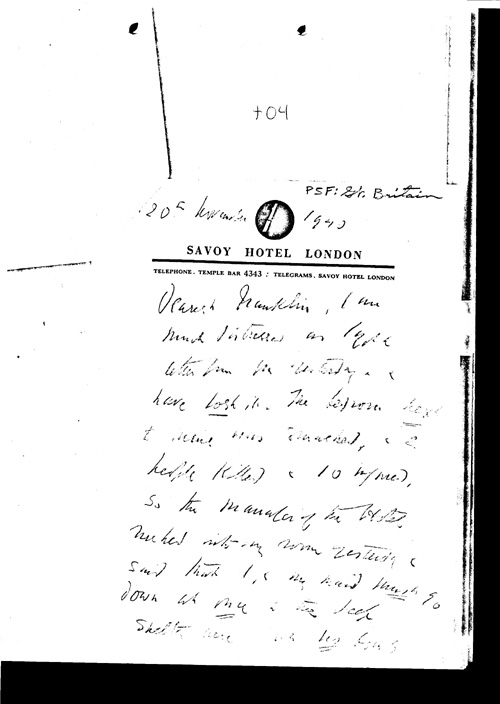 704
PSF: Gt. Britain
20th November 1940
SAVOY HOTEL LONDON
TELEPHONE. TEMPLE BAR 4343 : TELEGRAMS. SAVOY HOTEL LONDON
Dearest Franklin, I am
much distressed as I got a
letter from you yesterday & I
have lost it. The bedroom next
to mine was smashed, & 2
people killed & 10 injured,
so the manager of the Hotel
rushed into my room yesterday &
said that I, & my maid must go
down at once to the deep
shelter here